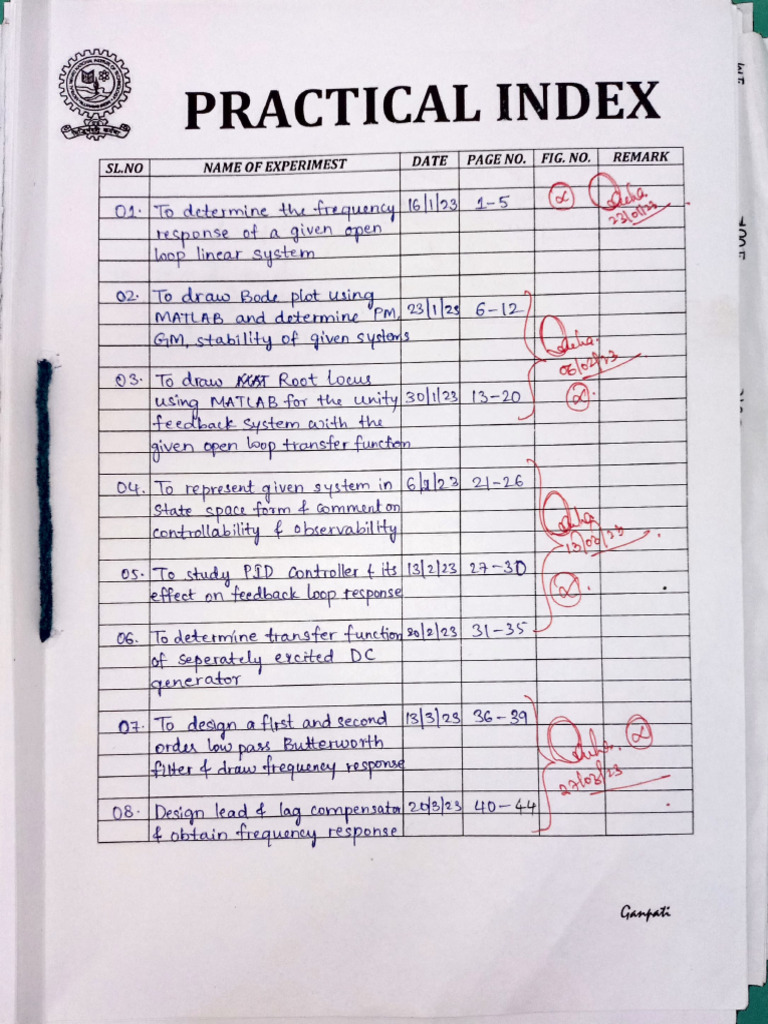 PRACTICAL INDEX
SL.NO NAME OF EXPERIMEST DATE PAGE NO. FIG. NO. REMARK
01. To determine the frequency 16/1/23 1-5 α
23/01/23
response of a given open
loop linear system
02. To draw Bode plot using
MATLAB and determine PM, 23/1/23 6-12
GM, stability of given systems
06/02/23
03. To draw Root locus
using MATLAB for the unity 30/1/23 13-20 α
feedback system with the
given open loop transfer function
04. To represent given system in 6/2/23 21-26
State space form & comment on
controllability & observability
13/02/23
05. To study PID Controller & its 13/2/23 27-30
effect on feedback loop response α
06. To determine transfer function 20/2/23 31-35
of seperately excited DC
generator
07. To design a first and second 13/3/23 36-39
order low pass Butterworth α
filter & draw frequency response
27/03/23
08. Design lead & lag compensator 20/3/23 40-44
& obtain frequency response
Ganpati